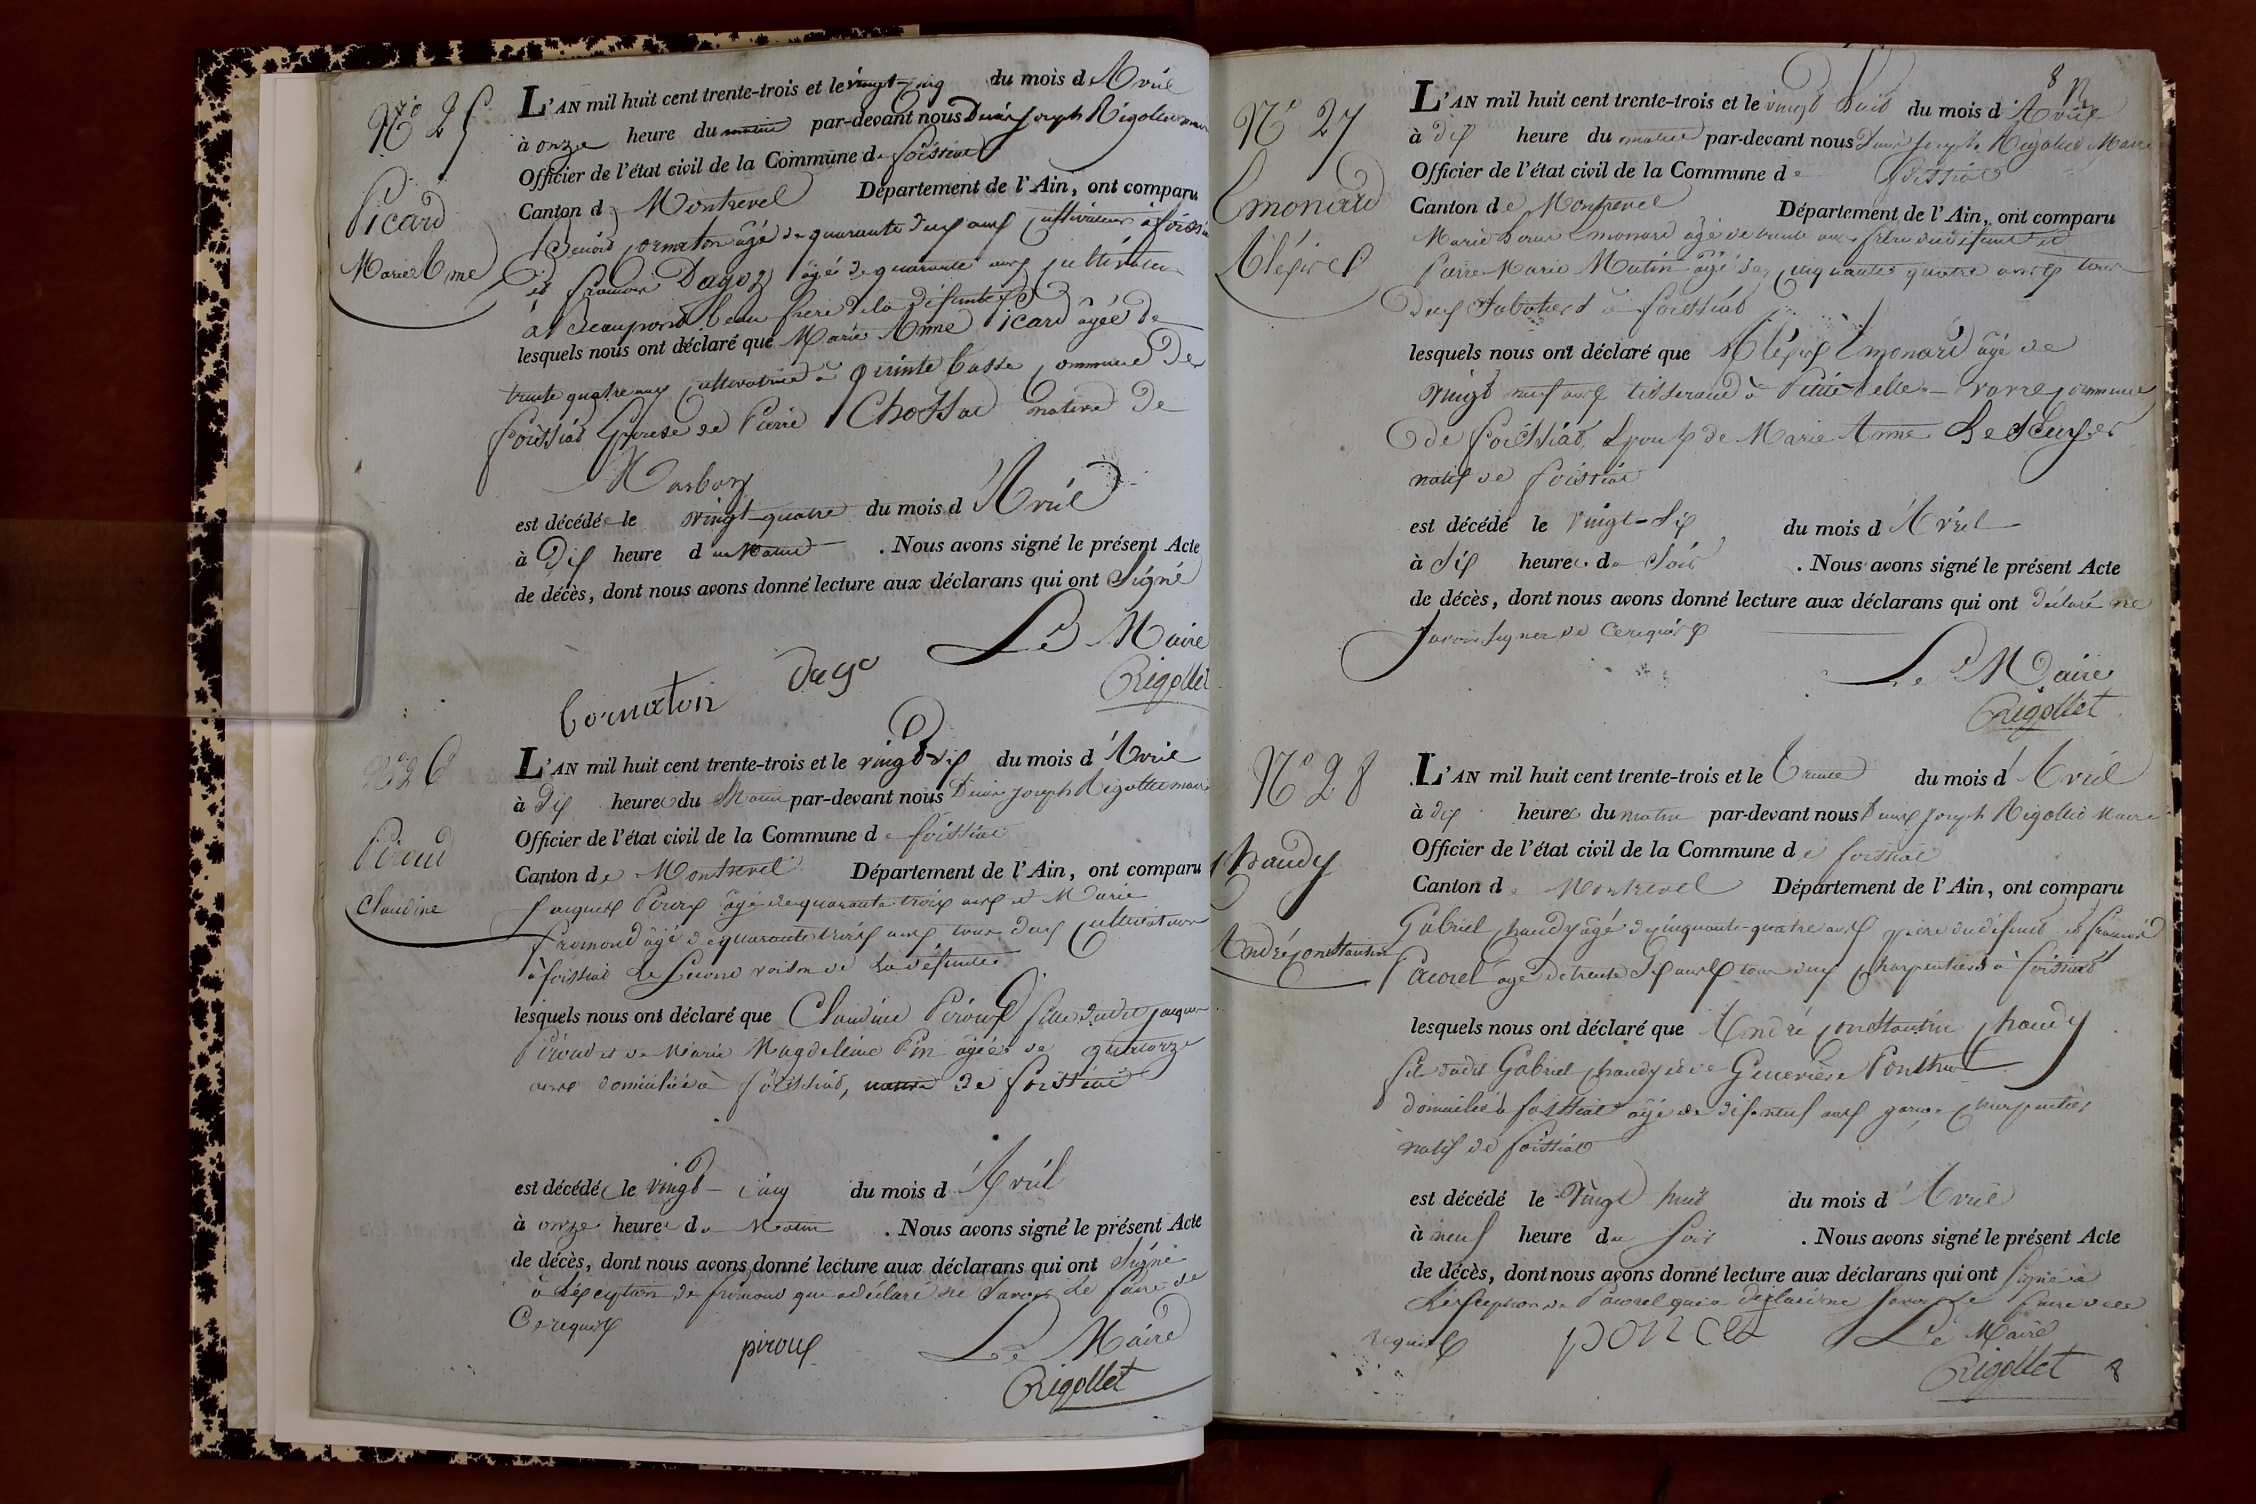 N.o 25
Picard
Marie Anne
L'AN mil huit cent trente-trois et le vingt-cinq du mois d'Avril
à onze heure du matin par-devant nous Denis Joseph Rigollet maire
Officier de l'état civil de la Commune de foissiat
Canton de Montrevel Département de l'Ain, ont comparu
Benoit Cormaton âgé de quarante deux ans cultivateur à foissiat
et françois Dagoz âgé de quarante ans cultivateur
à Beaupont beau frere de la défunte
lesquels nous ont déclaré que Marie Anne Picard âgée de
trente quatre ans cultivatrice à basse commune de
foissiat Epouse de Pierre Chossat native de
Marboz
est décédée le vingt-quatre du mois d'Avril
à Dix heure du Matin. Nous avons signé le présent Acte
de décès, dont nous avons donné lecture aux déclarans qui ont Signé
Le Maire
Cormaton Dago Rigollet
N.o 26
Piroud
Claudine
L'AN mil huit cent trente-trois et le vingt-six du mois d'Avril
à Dix heure du Matin par-devant nous Denis Joseph Rigollet maire
Officier de l'état civil de la Commune de foissiat
Canton de Montrevel Département de l'Ain, ont comparu
Jacques Piroux âgé de quarante trois ans et Marie
fromond âgé de quarante trois ans tous deux cultivateurs
à foissiat le Second voisin de la défunte
lesquels nous ont déclaré que Claudine Piroux fille dudit jacques
Piroud et de Marie Magdeleine Pin âgée de quatorze
ans domiciliée à foissiat, native de foissiat
est décédée le vingt-cinq du mois d'Avril
à onze heure du Matin. Nous avons signé le présent Acte
de décès, dont nous avons donné lecture aux déclarans qui ont Signé
à L'éxception de fromond qui a déclaré ne Savoir le faire de
Ce requis
piroux Le Maire
Rigollet
8
N.o 27
Emonard
Aléxis
L'AN mil huit cent trente-trois et le vingt huit du mois d'Avril
à dix heure du matin par-devant nous Denis Joseph Rigollet Maire
Officier de l'état civil de la Commune de foissiat
Canton de Montrevel Département de l'Ain, ont comparu
Marie Emonard âgé de trente ans frère du défunt et
Pierre Marie Mutin âgé de cinquante quatre ans tous
deux Sabotiers à foissiat
lesquels nous ont déclaré que Aléxis Emonard âgé de
vingt neuf ans tisserand à commune
de foissiat Epoux de Marie Anne Lescuyer
natif de foissiat
est décédé le vingt-six du mois d'Avril
à Six heure du Soir. Nous avons signé le présent Acte
de décès, dont nous avons donné lecture aux déclarans qui ont déclaré ne
Savoir Signer de Ce requis
Le Maire
Rigollet
N.o 28
Chaudy
André Constantin
L'AN mil huit cent trente-trois et le trente du mois d'Avril
à dix heure du matin par-devant nous Denis Joseph Rigollet Maire
Officier de l'état civil de la Commune de foissiat
Canton de Montrevel Département de l'Ain, ont comparu
Gabriel Chaudy âgé de cinquante-quatre ans père du défunt et françois
Pacorel âgé de trente Six ans tous deux Charpentiers à foissiat
lesquels nous ont déclaré que André Constantin Chaudy
fils dudit Gabriel Chaudy et de Geneviève Ponthus
domicilié à foissiat âgé de dix-neuf ans garçon Charpentier
natif de foissiat
est décédé le Vingt huit du mois d'Avril
à neuf heure du Soir. Nous avons signé le présent Acte
de décès, dont nous avons donné lecture aux déclarans qui ont Signé à
L'éxception de Pacorel qui a déclaré ne Savoir le faire de ce
requis Le Maire
Rigollet
8